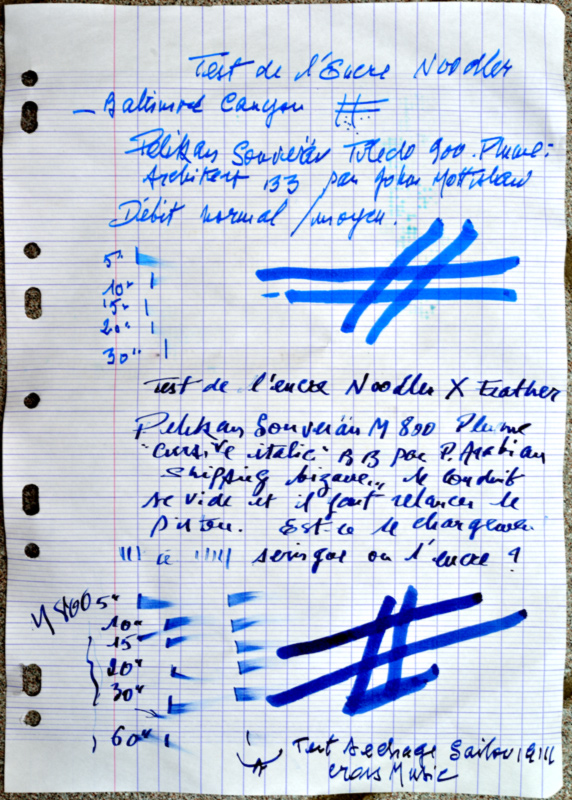 Test de l'Encre Noodler
— Baltimore Canyon
Pelikan Souverän Toledo 900. Plume:
Architect BB par John Mottishaw
Débit normal / moyen.
5"
10"
15"
20"
30"
Test de l'encre Noodler X Feather
Pelikan Souverän M 800 Plume
"cursive italic" BB par P. Arabian
Skipping bizarre... le conduit
se vide et il faut relancer le
piston. Est-ce le chargement
seringue ou l'encre ?
M 800 5"
10"
15"
20"
30"
60"
Test séchage Sailor 1911
cross Music